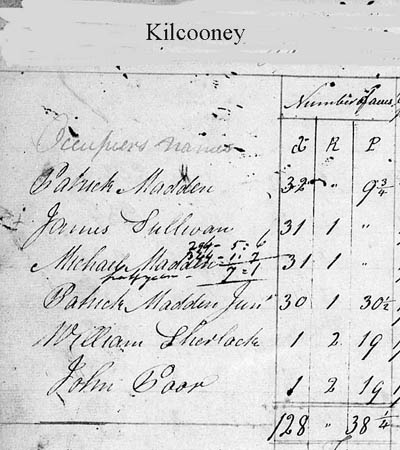 Kilcooney
Number of Acres
Occupiers names A R P
Patrick Madden 32 " 9 3/4
James Sullivan 31 1 "
296 - 5 : 6
Michael Madden 31 1 "
7 : 1
Patrick Madden Junr 30 1 30 1/2
William Sherlock 1 2 19
John Poor 1 2 19
128 " 38 1/4